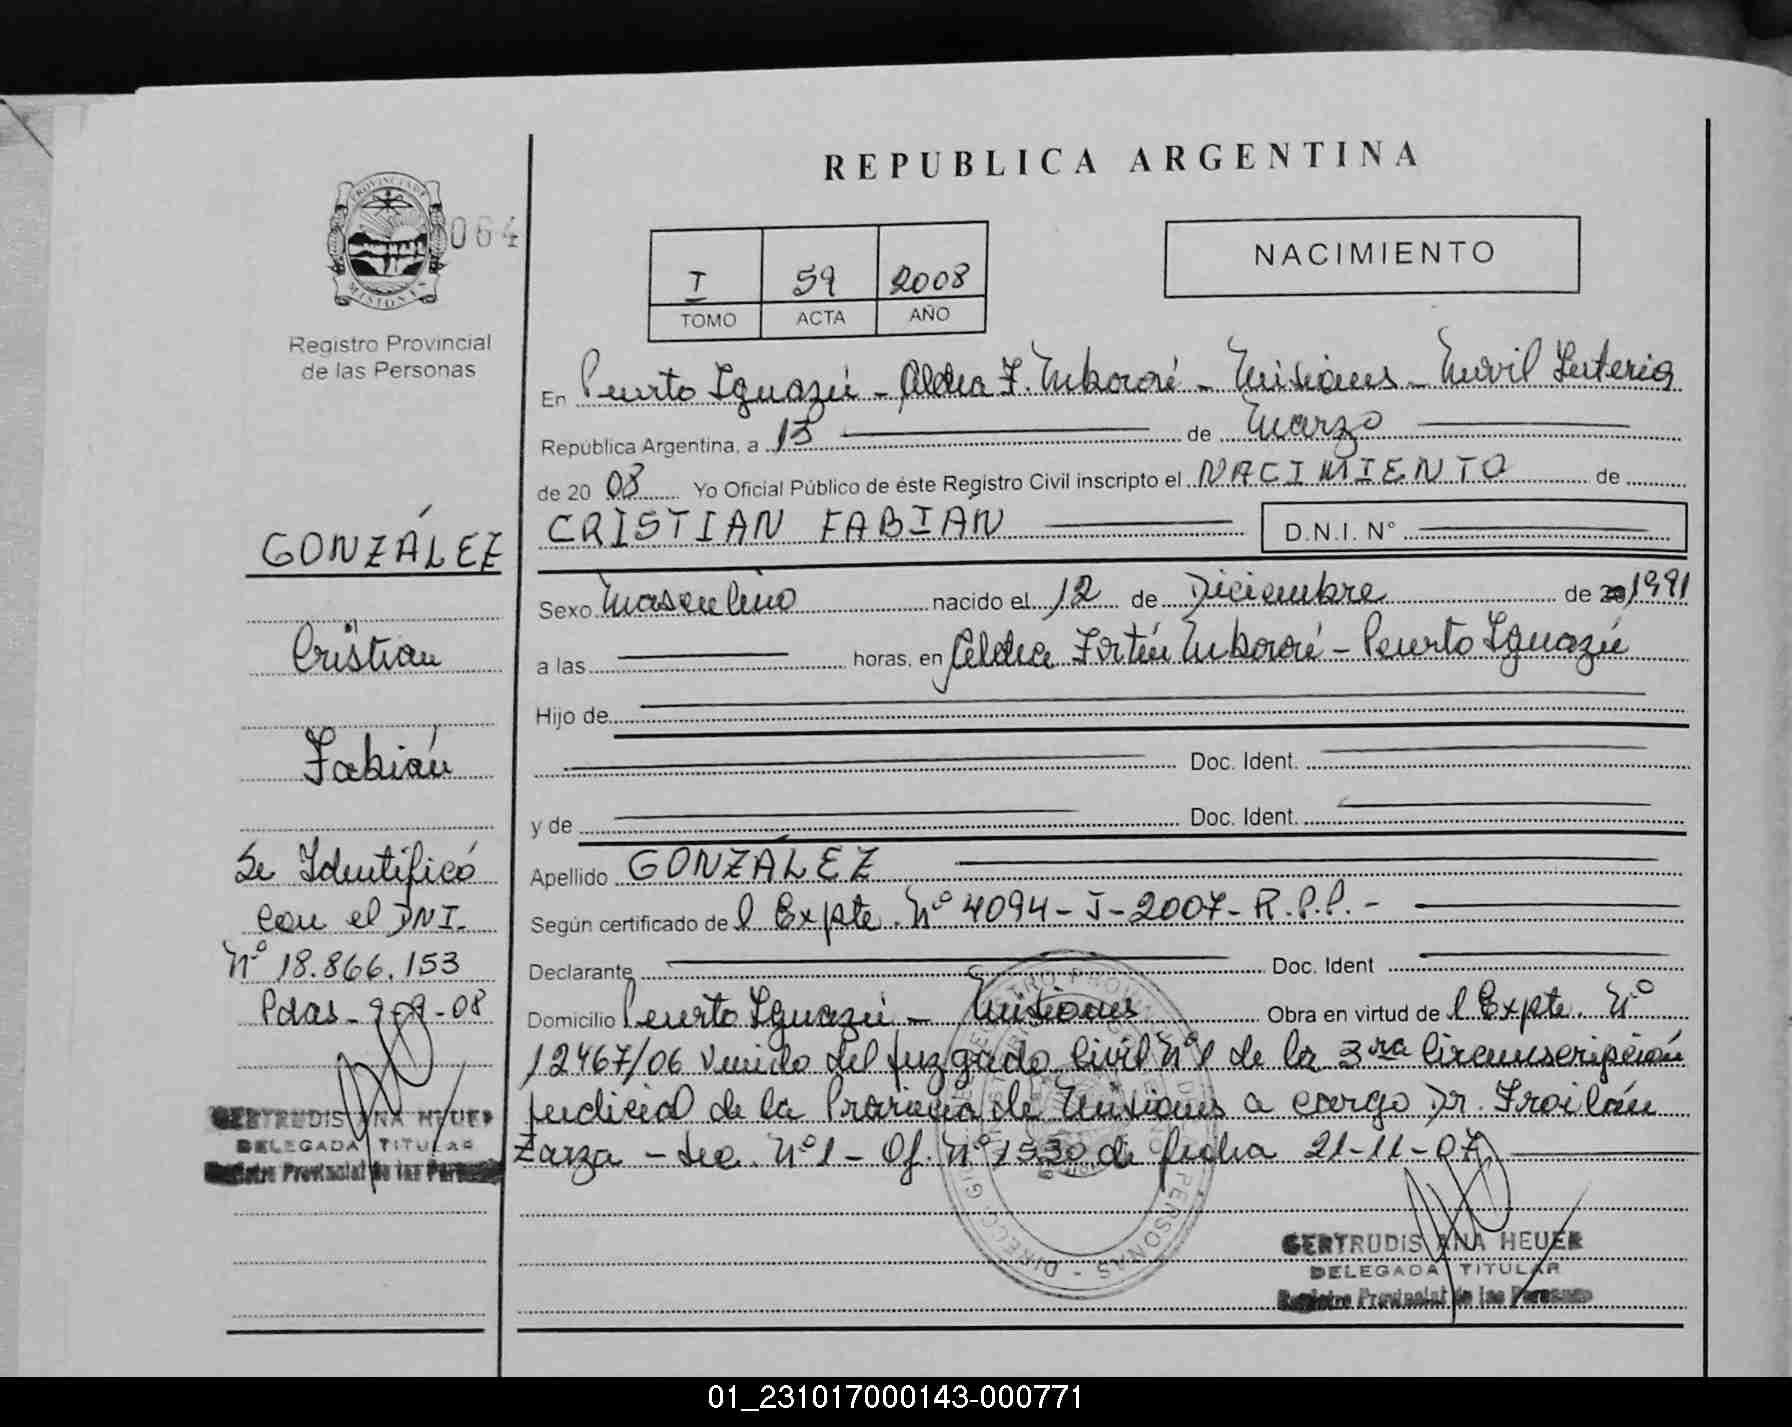 REPUBLICA ARGENTINA
PROVINCIA DE
MISIONES
064
Registro Provincial
de las Personas
I 59 2008
TOMO ACTA AÑO
NACIMIENTO
En Puerto Iguazú - Aldea F. Mbororé - Misiones - Movil
República Argentina, a 13 de Marzo
de 20 08 Yo Oficial Público de éste Registro Civil inscripto el NACIMIENTO de
CRISTIAN FABIÁN D.N.I. N°
Sexo Masculino nacido el 12 de Diciembre de 1991
a las horas, en Aldea Fortín Mbororé - Puerto Iguazú
Hijo de
Doc. Ident.
y de Doc. Ident.
Apellido GONZÁLEZ
Según certificado de l Expte. Nº 4094-J-2007-R.P.P.-
Declarante Doc. Ident
Domicilio Puerto Iguazú - Misiones Obra en virtud de l Expte. Nº
12467/06 Venido del Juzgado Civil Nº1 de la 3ra Circunscripción
Judicial de la Provincia de Misiones a cargo Dr. Froilán
Zarza - Sec. Nº1 - Of. Nº 1530 de fecha 21-11-07
GERTRUDIS ANA HEUER
DELEGADA TITULAR
Registro Provincial de las Personas
GONZÁLEZ
Cristian
Fabián
Se Identificó
con el DNI.
Nº 18.866.153
Pdas-
GERTRUDIS ANA HEUER
DELEGADA TITULAR
Registro Provincial de las Personas
01_231017000143-000771